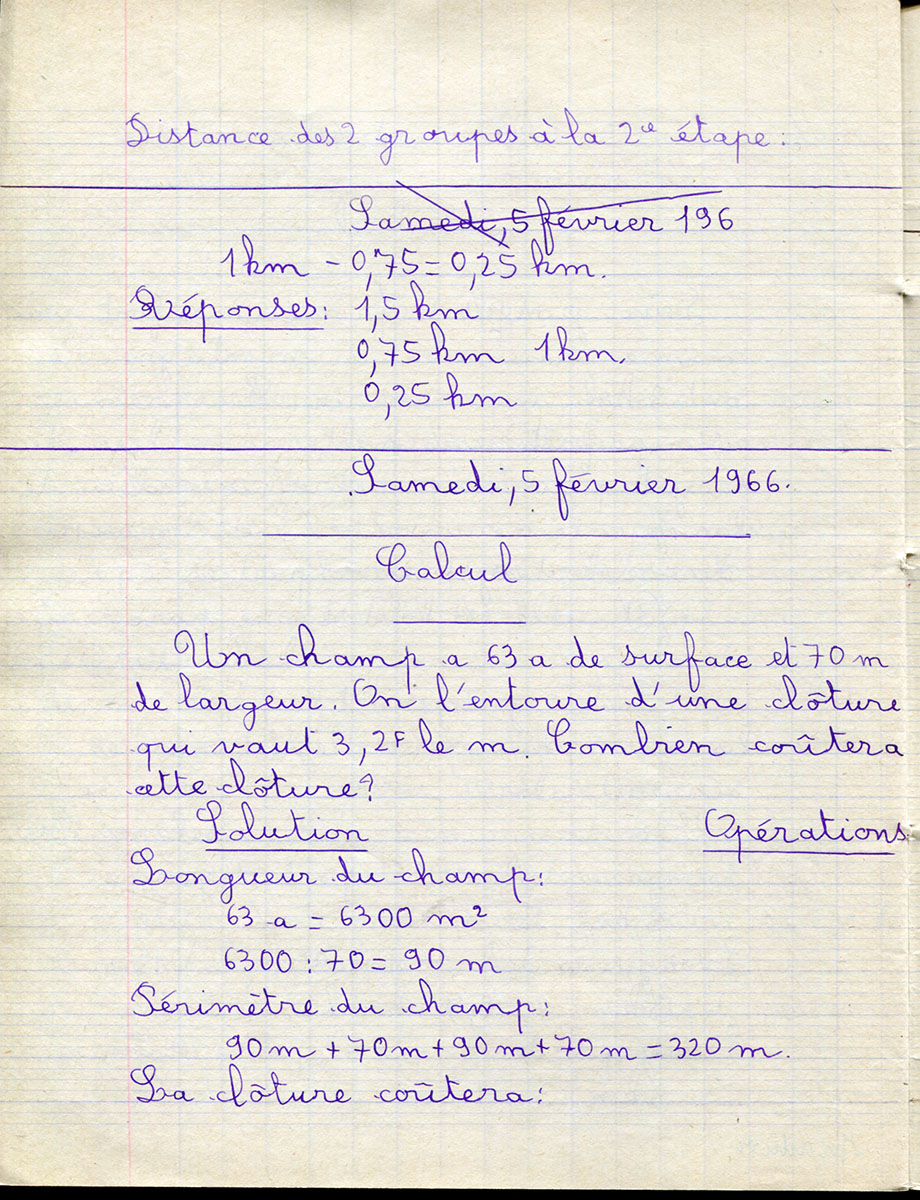 Distance des 2 groupes à la 2e étape:
Samedi, 5 février 196
1km - 0,75 = 0,25 km.
Réponses: 1,5 km
0,75 km 1km.
0,25 km
Samedi, 5 février 1966.
Calcul
Un champ a 63 a de surface et 70 m
de largeur. On l'entoure d'une clôture
qui vaut 3,2F le m. Combien coûtera
cette clôture?
Solution Opérations
Longueur du champ:
63 a = 6300 m²
6300 : 70 = 90 m
Périmètre du champ:
90m + 70m + 90m + 70m = 320 m.
La clôture coûtera: